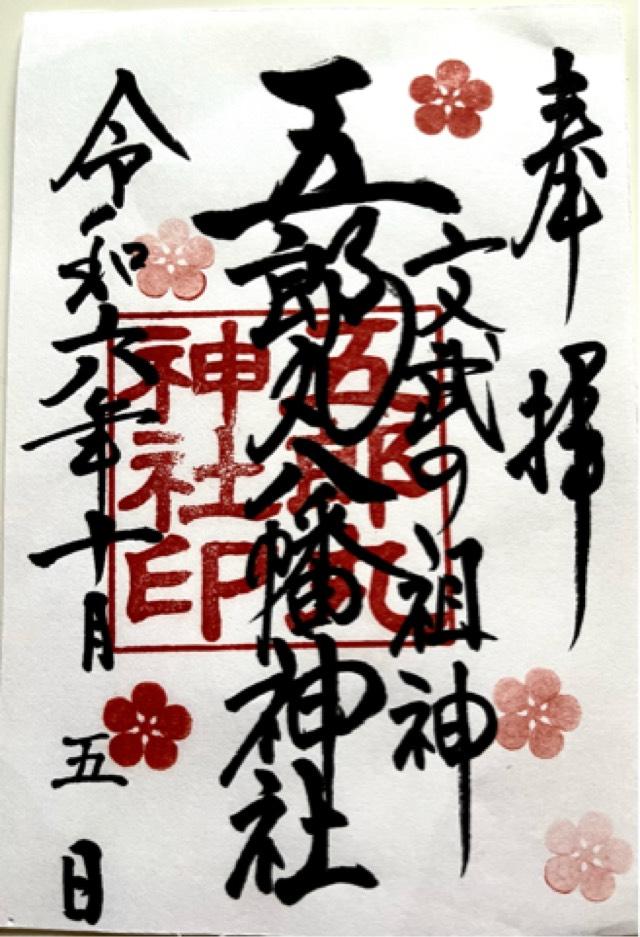 奉拝
文武の祖神
五郎丸八幡神社
五郎丸
神社印
令和六年十月五日